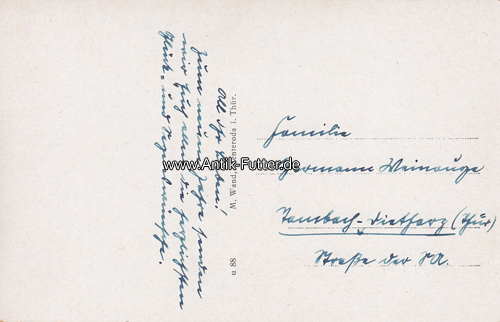 All Ihr Lieben!
Zum neuen Jahre senden
wir Euch allen die herzlichsten
Glück- und Segenswünsche.
M. Wand, Denteroda i. Thür.
u 88
www.Antik-Futter.de
Familie
Hermann Weinauge
Tambach-Dietharz (Thür)
Straße der SA.